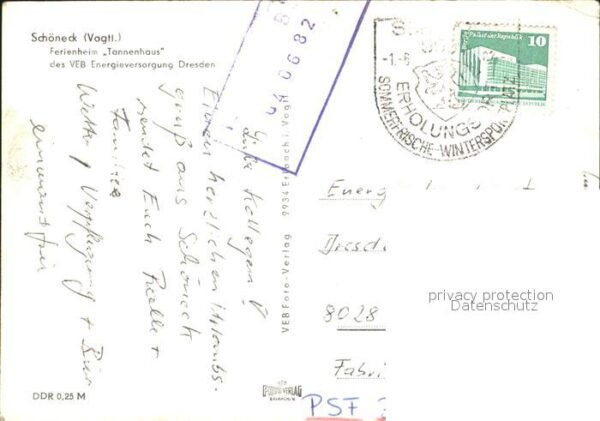 Schöneck (Vogtl.)
Ferienheim „Tannenhaus"
des VEB Energieversorgung Dresden
DDR 0,25 M
Liebe Kollegen!
Einen herzlichen Urlaubs-
gruß aus Schöneck
sendet Euch
Familie
Wetter, Verpflegung + Bier
einwandfrei
VEB Foto-Verlag 9934 Erlbach i. Vogtl
0682
Palast der Republik
10
ERHOLUNGS
SOMMERFRISCHE-WINTERSPORTPLATZ
Energ
Dresd
8028
Fabri
PSF
privacy protection
Datenschutz